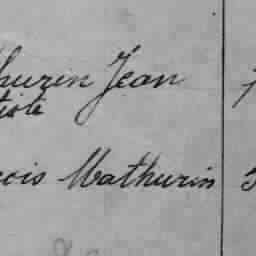 hurin Jean
tiste
çois Mathurin